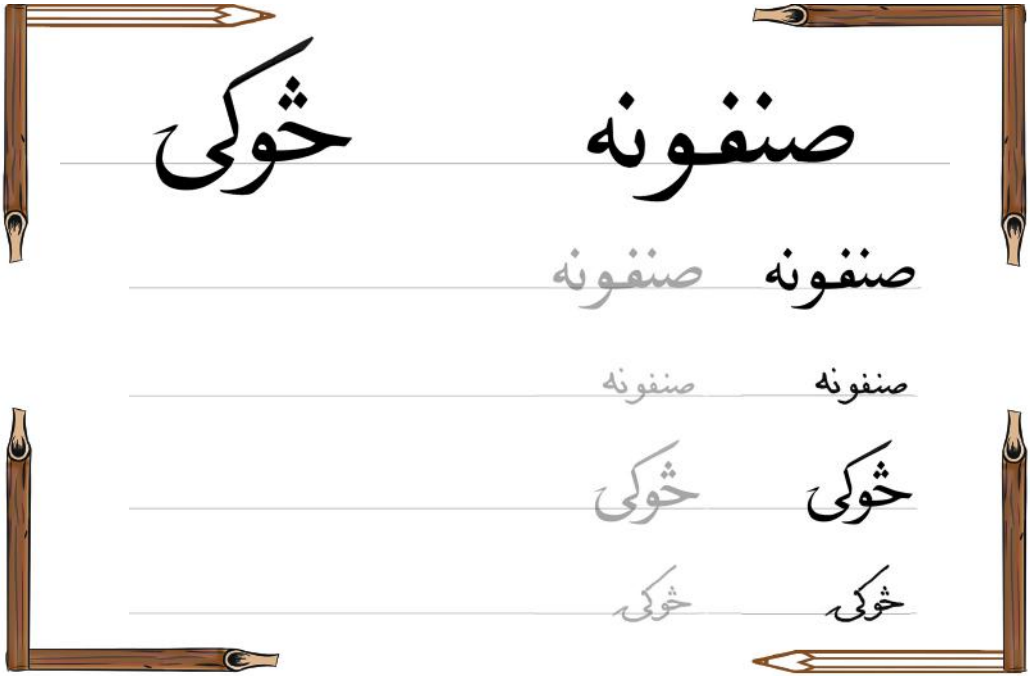 صنفونه څوکۍ
صنفونه صنفونه
صنفونه صنفونه
څوکۍ څوکۍ
څوکۍ څوکۍ